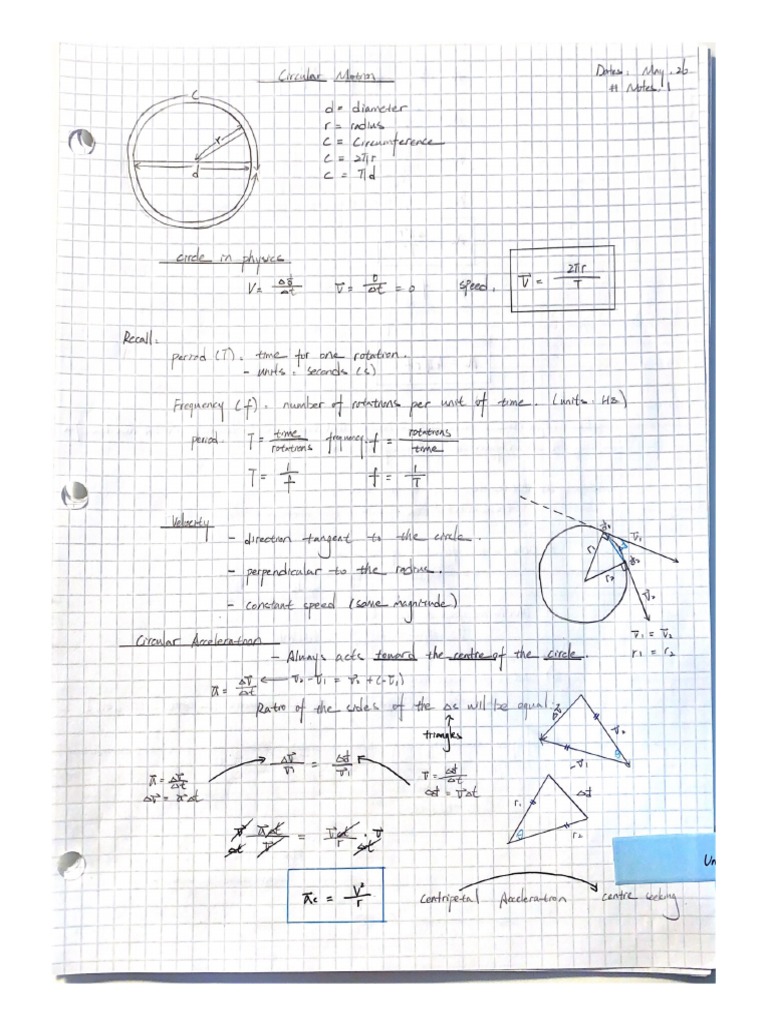 Circular Motion
Date: May. 26
# Notes. 1
C
r
d
d = diameter
r = radius
C = Circumference
C = 2πr
C = πd
circle in physics
V = Δd⃗/Δt
v⃗ = 0/Δt = 0
speed.
v⃗ = 2πr/T
Recall:
period (T). time for one rotation.
- units: seconds (s)
Frequency (f). number of rotations per unit of time. (units: Hz)
period. T = time/rotations frequency. f = rotations/time
T = 1/f f = 1/T
Velocity
- direction tangent to the circle.
- perpendicular to the radius.
- constant speed (same magnitude)
r₁
r₂
v⃗₁
v⃗₂
v⃗₁ = v⃗₂
r₁ = r₂
Circular Acceleration
- Always acts toward the centre of the circle.
a⃗ = Δv⃗/Δt ← v⃗₂ - v⃗₁ = v⃗₂ + (-v⃗₁)
Ratio of the sides of the Δs will be equal.
triangles
Δv⃗
v⃗₂
-v⃗₁
θ
a⃗ = Δv⃗/Δt
Δv⃗ = a⃗Δt
Δv⃗/v⃗₁ = Δd⃗/r⃗₁
v⃗ = Δd⃗/Δt
Δd⃗ = v⃗Δt
r₁
Δd⃗
r₂
θ
v⃗/Δt a⃗Δt/v⃗ = v⃗Δt/r · v⃗/Δt
a⃗c = V²/r
Centripetal Acceleration
centre seeking
Un